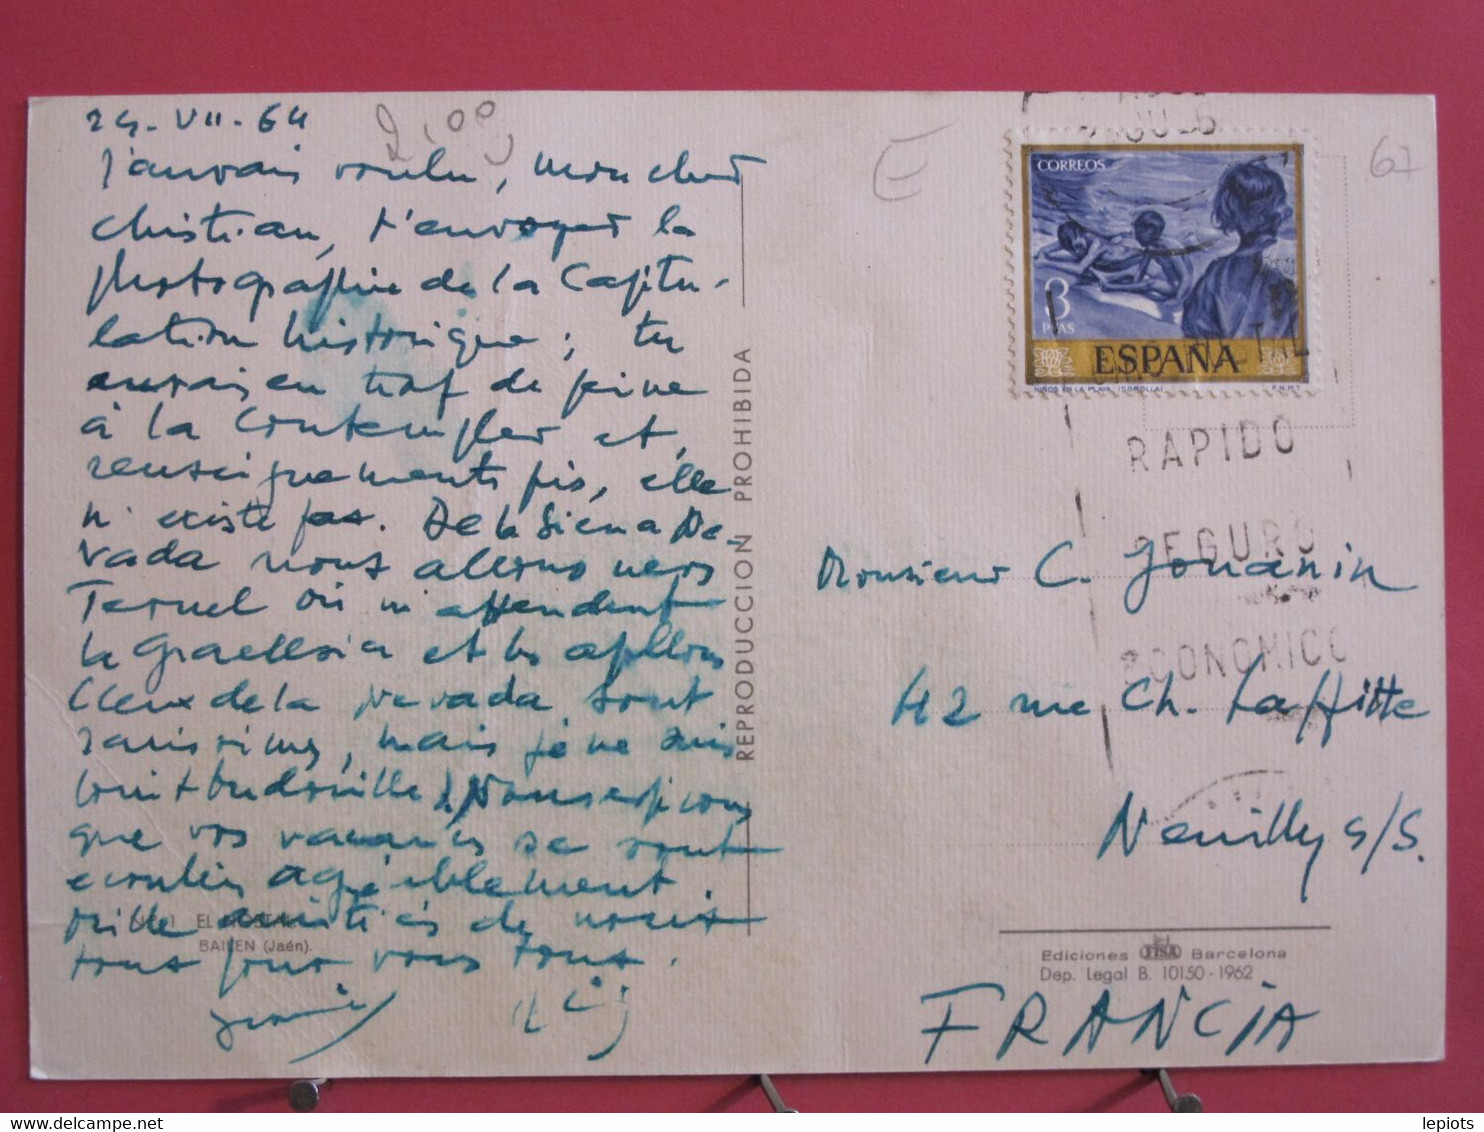 24.VII.64
J'aurais voulu, mon cher
Christian, t'envoyer la
photographie de la Capitu-
lation historique ; tu
aurais eu de peine
à la contempler et,
renseignements pris, elle
n'existe pas. De la Sierra Ne-
vada nous allons vers
Teruel où m'attendent
la Graellsia et les apollons
Ceux de la Nevada sont
rarissimes, mais je ne suis
Nous espérons
que vos vacances se sont
écoulées agréablement.
Mille amitiés de nous
tous pour vous tous.
2,00
E
67
CORREOS
3
PTAS
ESPAÑA
NIÑOS EN LA PLAYA (SOROLLA) F.N.M.T
RAPIDO
SEGURO
ECONOMICO
Monsieur C. Jouanin
42 rue Ch. Laffitte
Neuilly s/S.
FRANCIA
REPRODUCCION PROHIBIDA
N.º 1 EL HOSTAL
BAILEN (Jaén).
Ediciones FISA Barcelona
Dep. Legal B. 10150-1962
lepiots